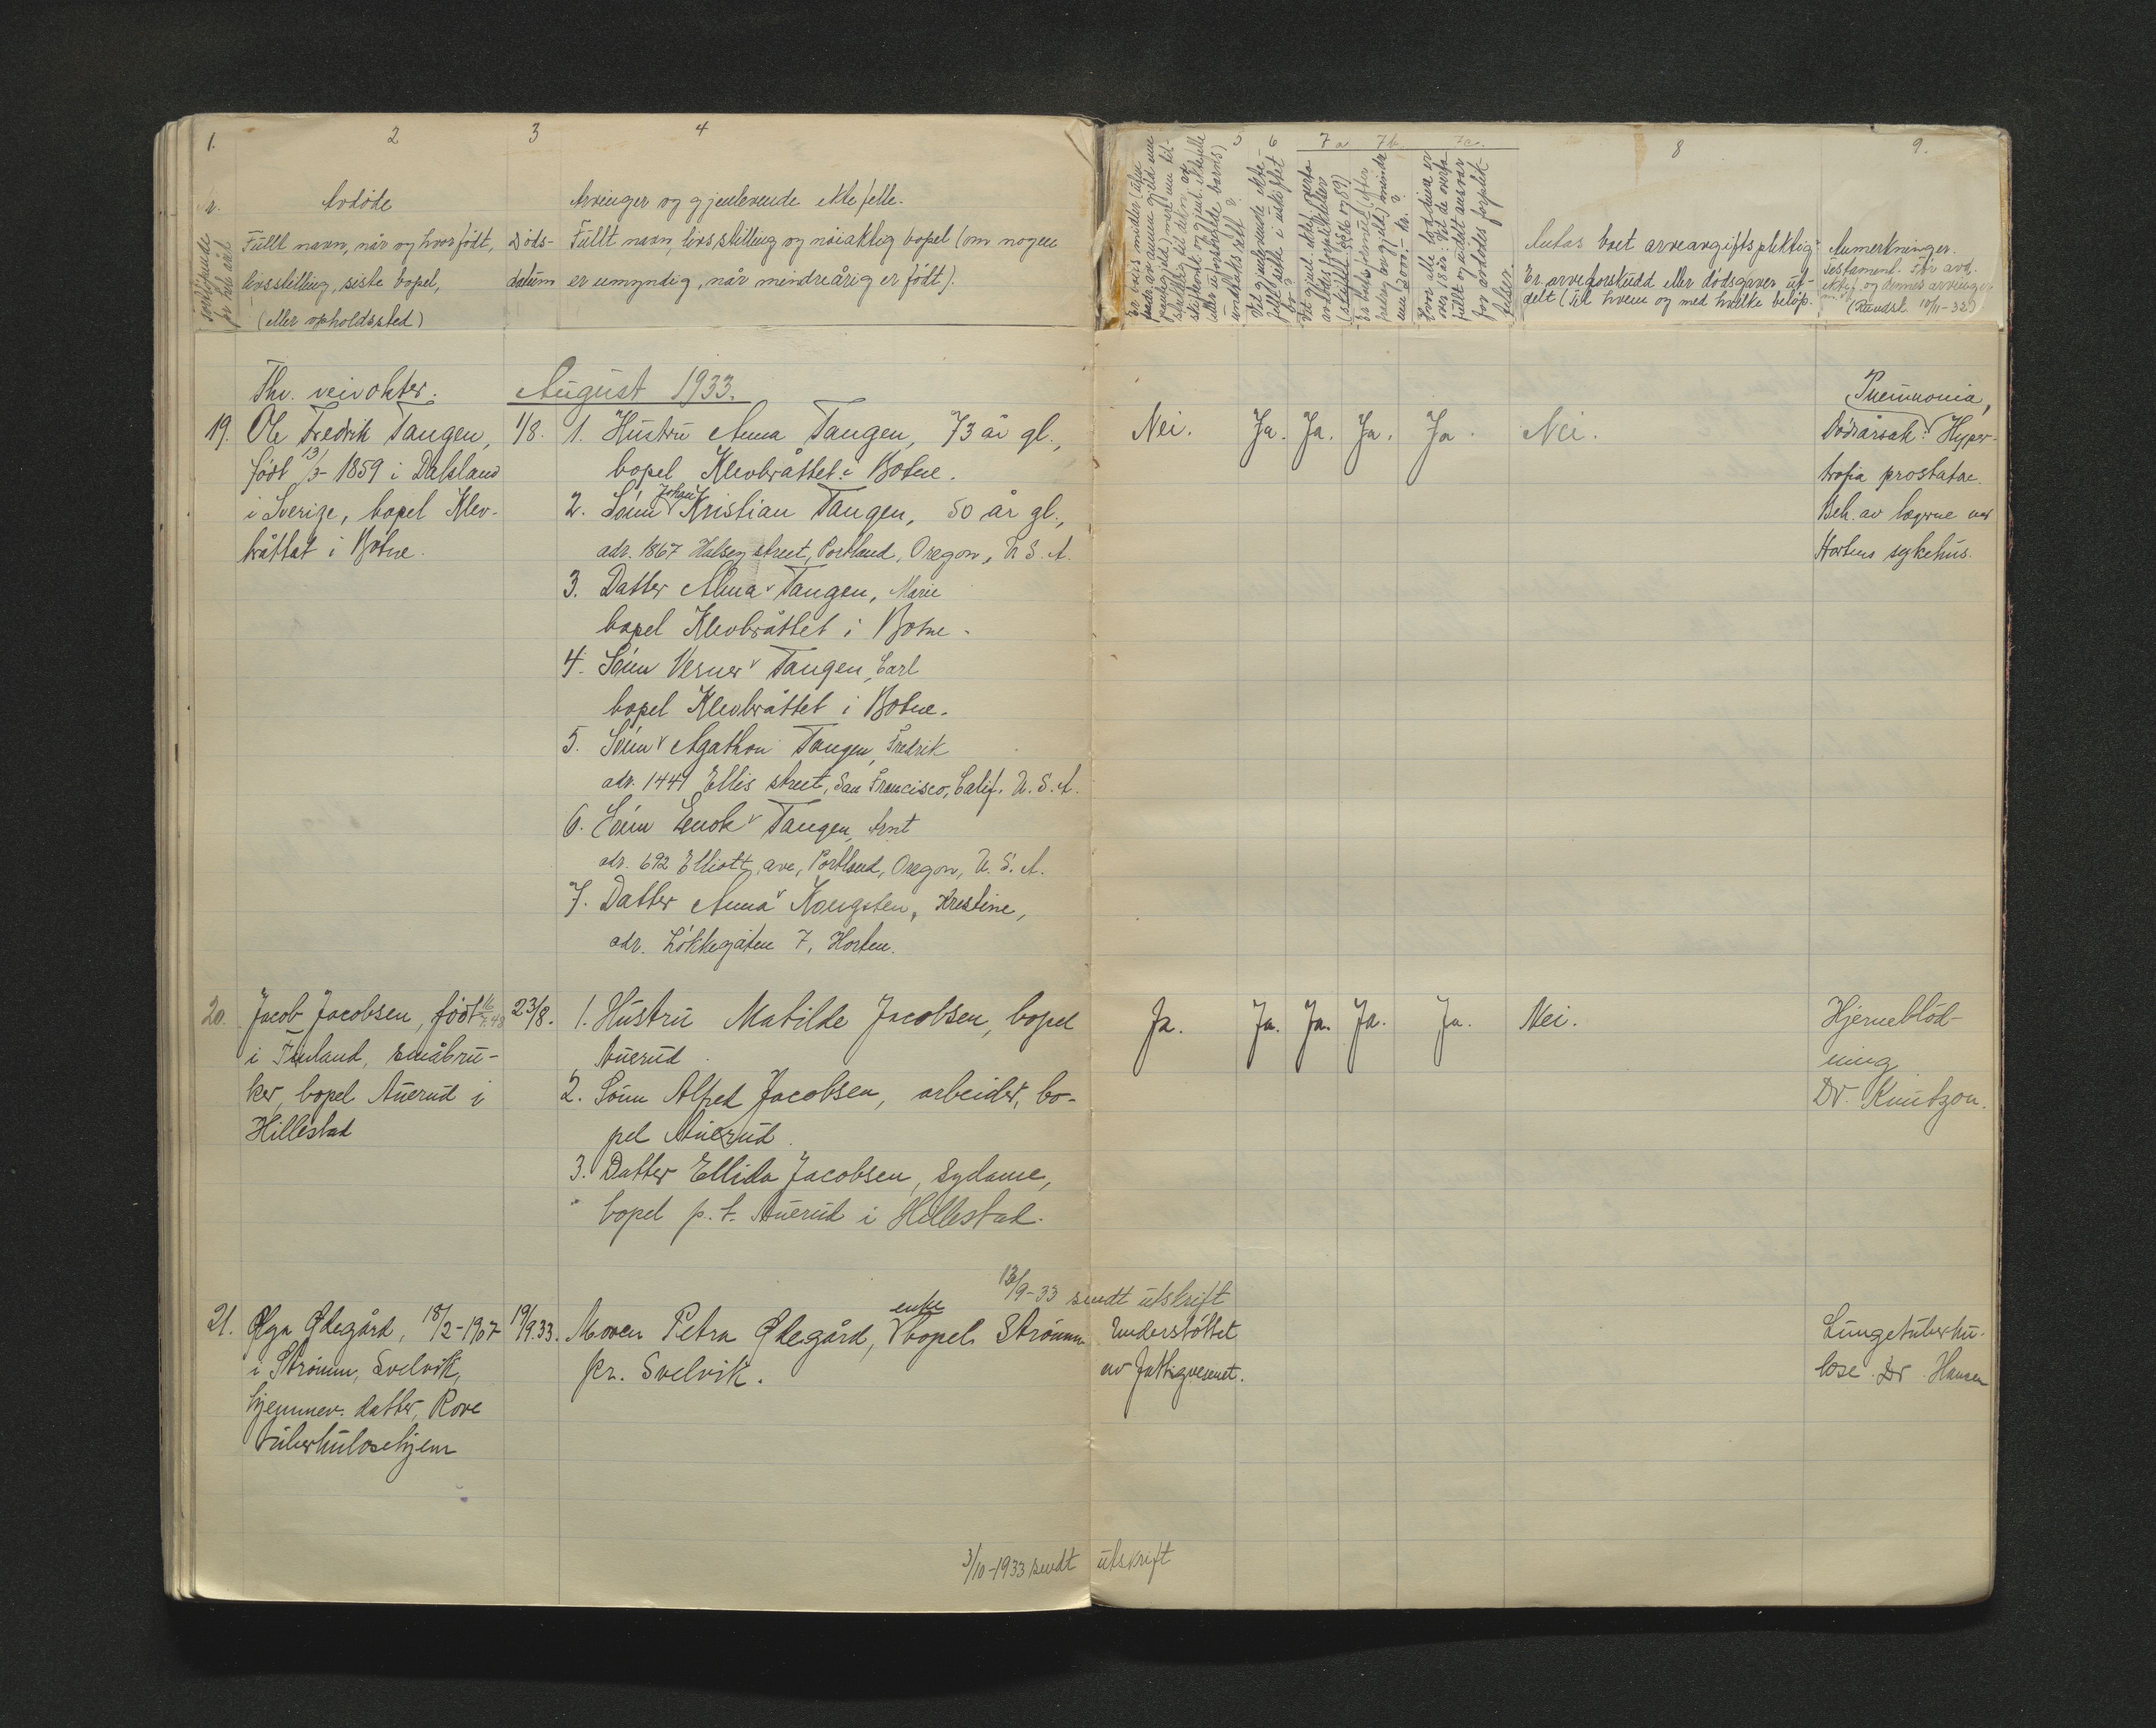 1. 2 3 4
Nr.
fortløpende
for hele året
Avdøde
Fullt navn, når og hvor født,
livsstilling, siste bopel,
(eller opholdssted)
Døds-
datum
Arvinger og gjenlevende ektefelle.
Fullt navn, livsstilling og nøiaktig bopel (om nogen
er umyndig, når mindreårig er født).
August 1933.
Fhv. veivokter.
19. Ole Fredrik Tangen,
født 13/3-1859 i Dalsland
i Sverige, bopel Klev-
bråttet i Botne.
1/8.
1. Hustru Anna Tangen, 73 år gl.,
bopel Klevbråttet i Botne.
2. Sønn Johan Kristian Tangen, 50 år gl.,
adr. 1867 Halsey street, Portland, Oregon, U.S.A.
3. Datter Alma Tangen, Marie
bopel Klevbråttet i Botne.
4. Sønn Verner Tangen, Carl
bopel Klevbråttet i Botne.
5. Sønn Agathon Tangen, Fredrik
adr. 1441 Ellis street, San Francisco, Calif. U.S.A.
6. Sønn Enok Tangen, Arnt
adr. 692 Elliott, ave, Portland, Oregon, U.S.A.
7. Datter Anna Kongsten, Kristine,
adr. Løkkegaten 7, Horten.
20. Jacob Jacobsen, født 16/7.48
i Finland, småbru-
ker, bopel Auerud i
Hillestad
23/8.
1. Hustru Matilde Jacobsen, bopel
Auerud
2. Sønn Alfred Jacobsen, arbeider, bo-
pel Auerud.
3. Datter Ellida Jacobsen, sydame,
bopel p.t. Auerud i Hillestad.
13/9-33 sendt utskrift
21. Olga Ødegård, 18/2-1907
i Strømm, Svelvik,
hjemmev. datter, Rove
tuberkulosehjem
19/9.33.
Moren Petra Ødegård, enke bopel Strømm
pr. Svelvik.
3/10-1933 sendt utskrift
5 6 7a 7b 7c. 8 9.
Det gjenlevende ekte-
felle sitte i uskiftet
bo?
(skiftel. §§ 86 og 89)
enn 2000.- kr.?
Antas boet arveavgiftspliktig?
Er arveforskudd eller dødsgaver ut-
delt (til hvem og med hvilke beløp.
Anmerkninger.
(Rundskr. 10/11-32)
Nei. Ja. Ja. Ja. Ja. Nei.
Pneumonia,
Dødsårsak: Hyper-
trofia prostatae.
Beh. av lægene ved
Hortens sykehus.
Ja. Ja. Ja. Ja. Ja. Nei.
Hjerneblød-
ning
Dr. Knutzon.
Understøttet
av fattigvesenet.
Lungetuberku-
lose. Dr. Hansen